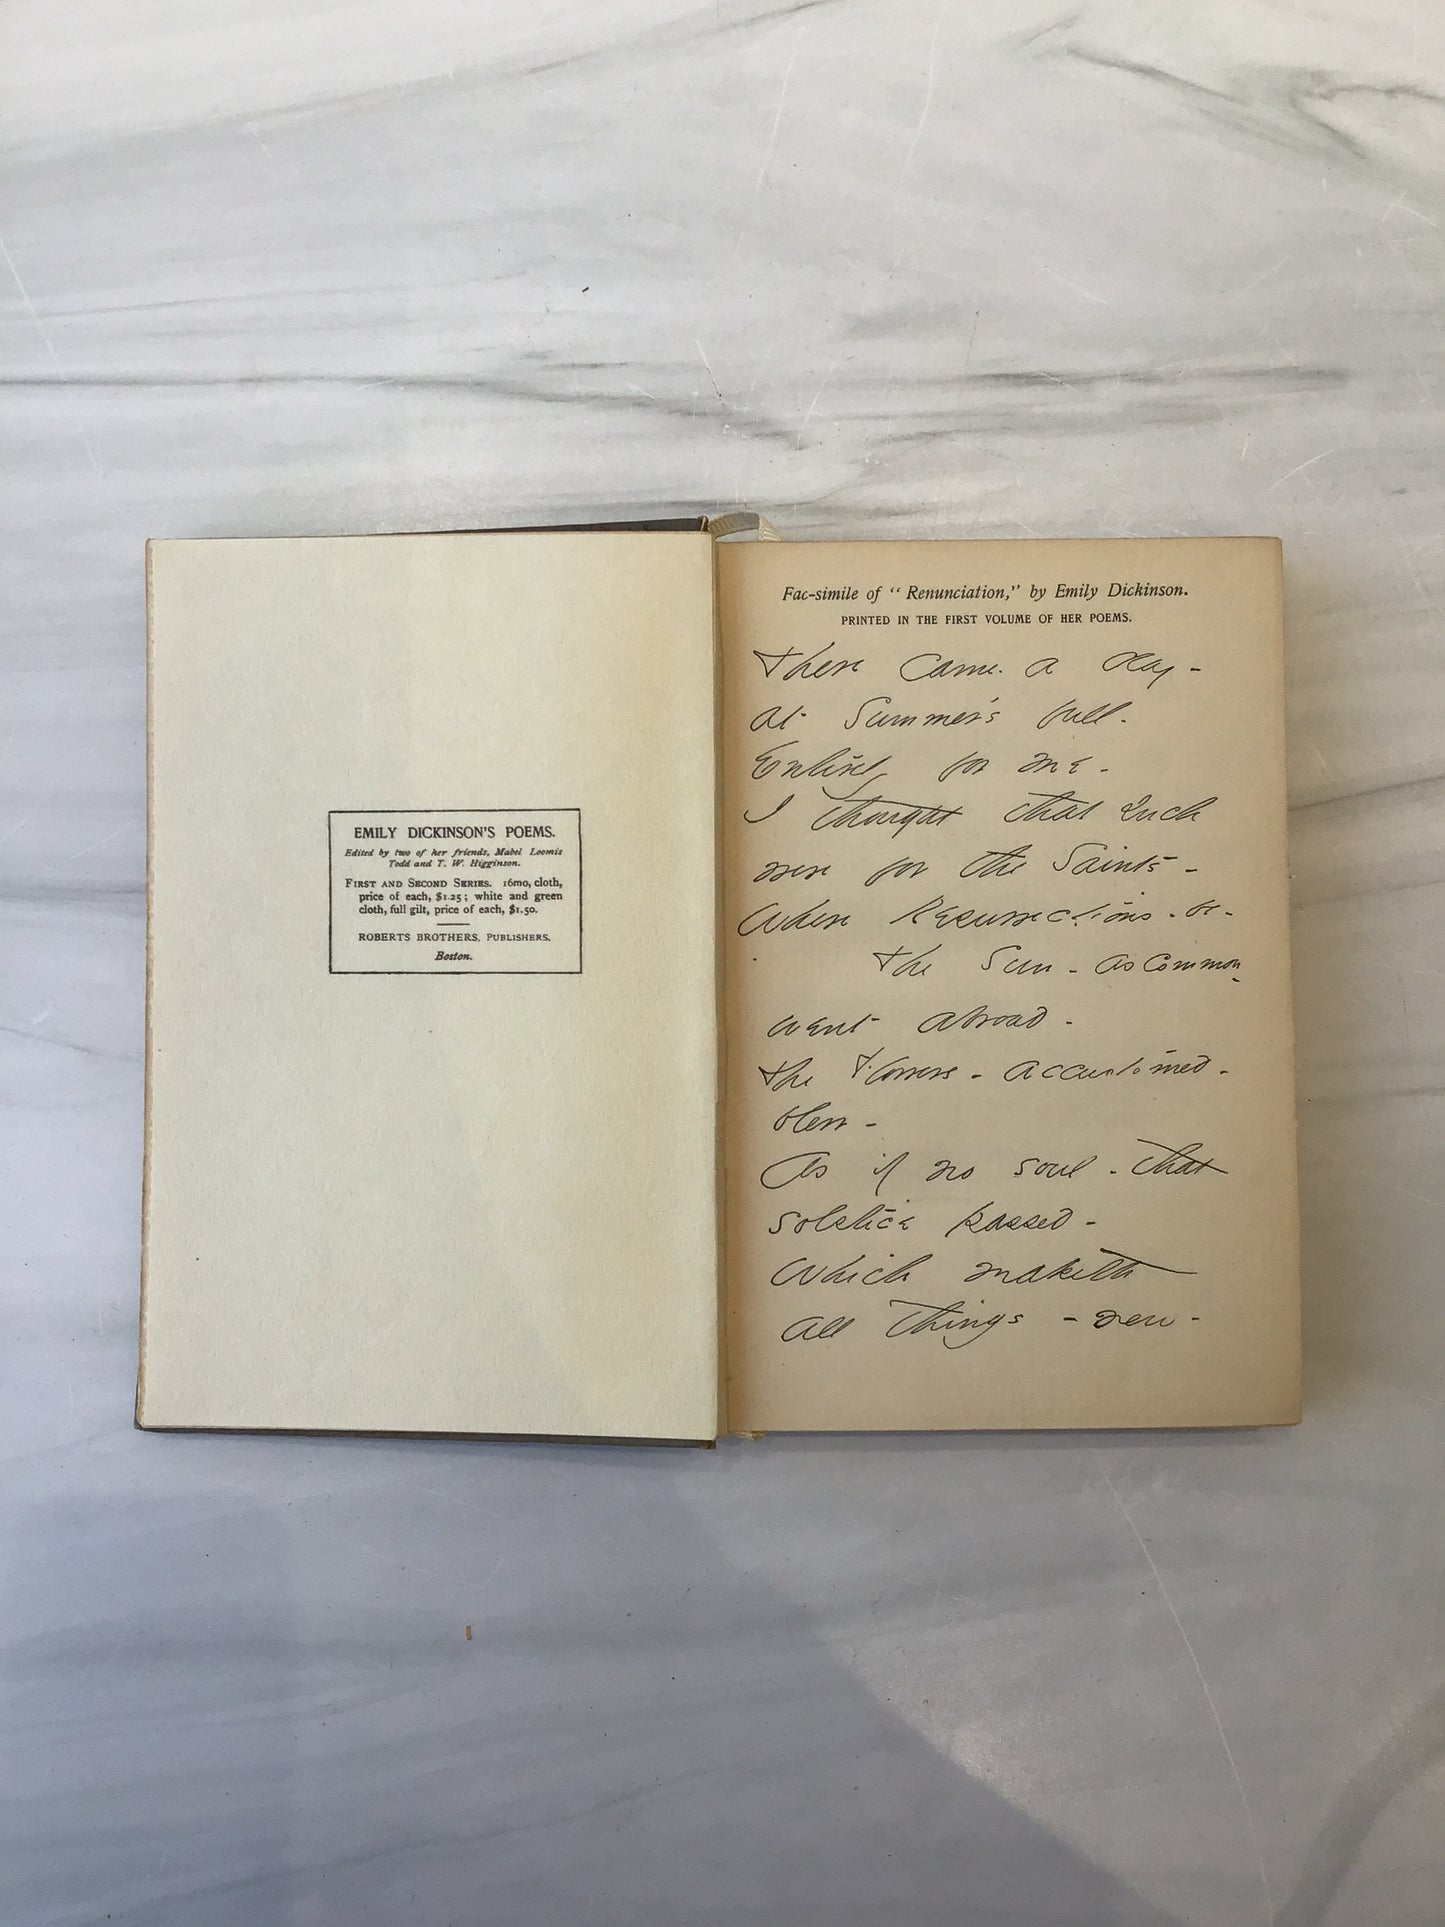 EMILY DICKINSON'S POEMS.
Edited by two of her friends, Mabel Loomis
Todd and T. W. Higginson.
FIRST AND SECOND SERIES. 16mo, cloth,
price of each, $1.25; white and green
cloth, full gilt, price of each, $1.50.
ROBERTS BROTHERS, PUBLISHERS,
Boston.
Fac-simile of "Renunciation," by Emily Dickinson.
PRINTED IN THE FIRST VOLUME OF HER POEMS.
There came a day -
at Summer's full.
Entirely for me -
I thought that such
were for the Saints -
Where Resurrections - be -
The Sun - as common
went abroad -
The Flowers - accustomed -
blew -
As if no soul - that
solstice passed -
Which maketh
all things - new -